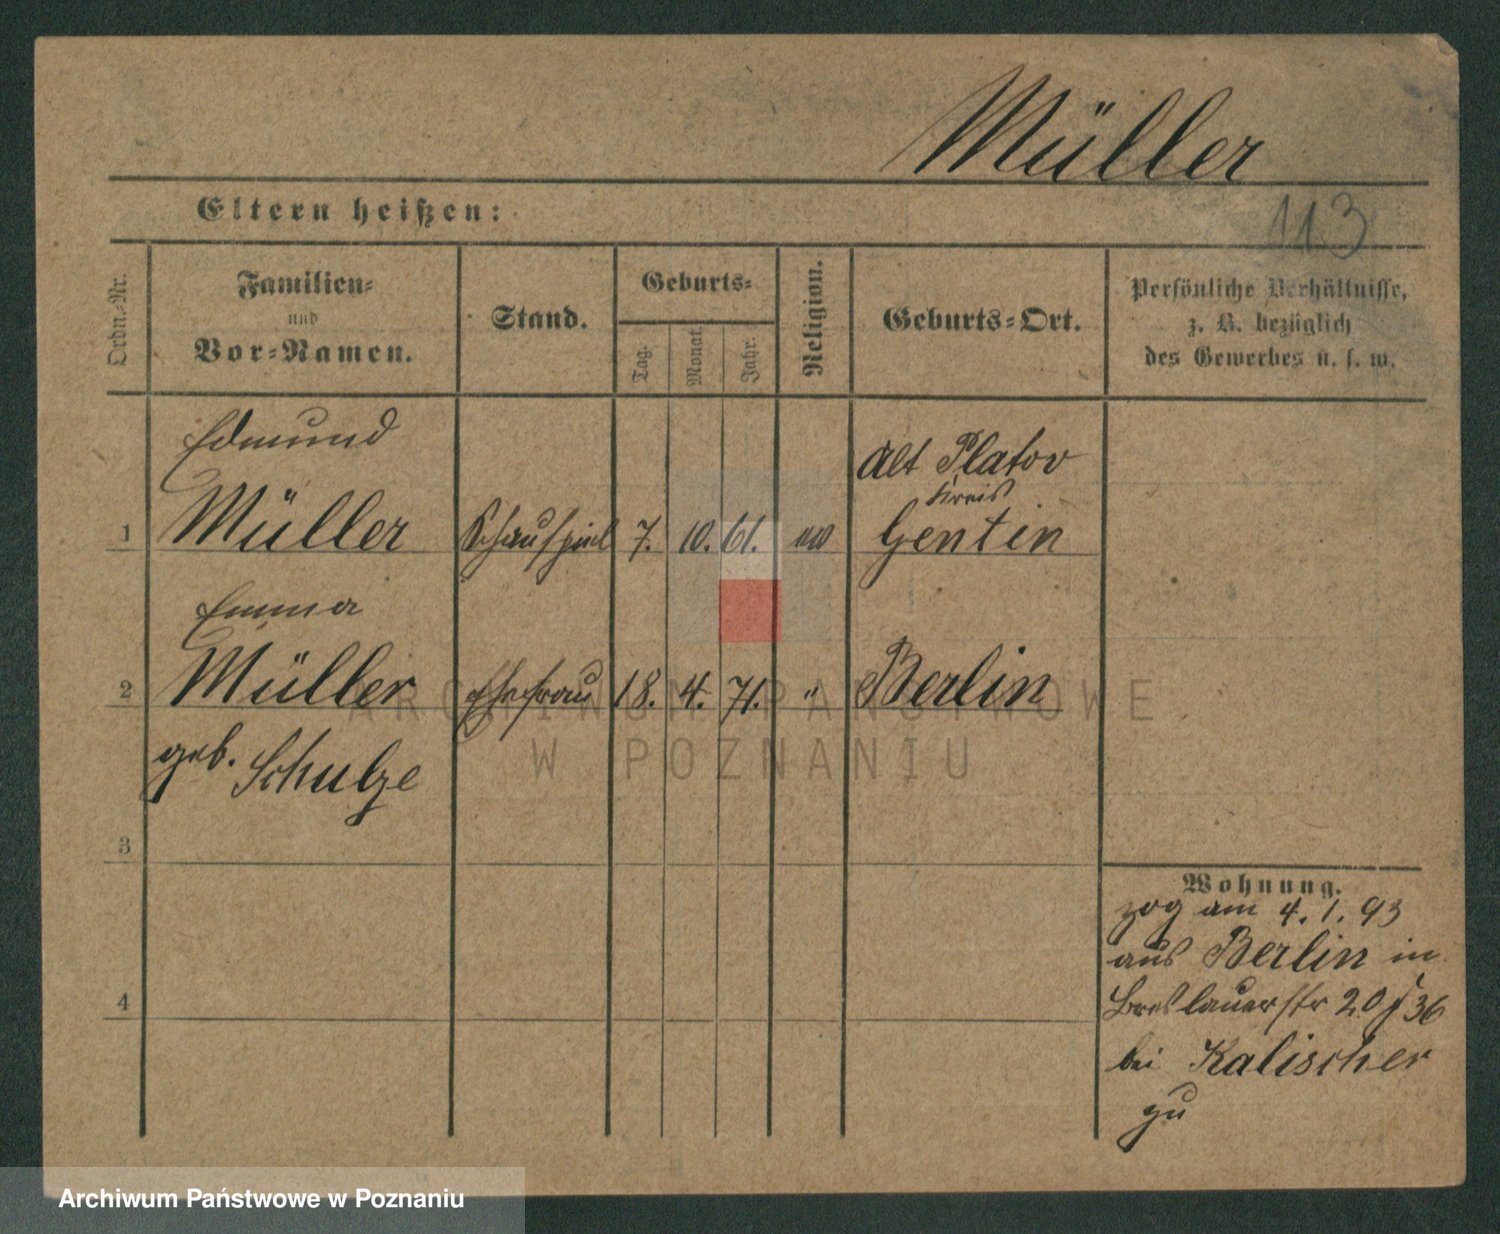 Müller
Eltern heißen:
113
Ordn.-Nr.
Familien-
und
Vor-Namen.
Stand.
Geburts-
Tag.
Monat.
Jahr.
Religion.
Geburts-Ort.
Persönliche Verhältnisse,
z. B. bezüglich
des Gewerbes u. s. w.
Edmund
Alt Platov
Kreis
1 Müller Schauspiel 7. 10. 61. Gentin
Emma
2 Müller Ehefrau 18. 4. 71. " Berlin
geb. Schulze
3
4
Wohnung.
zog am 4.1.93
aus Berlin in
Breslauerstr 20 36
bei Kalischer
zu
ARCHIWUM PAŃSTWOWE
W POZNANIU
Archiwum Państwowe w Poznaniu